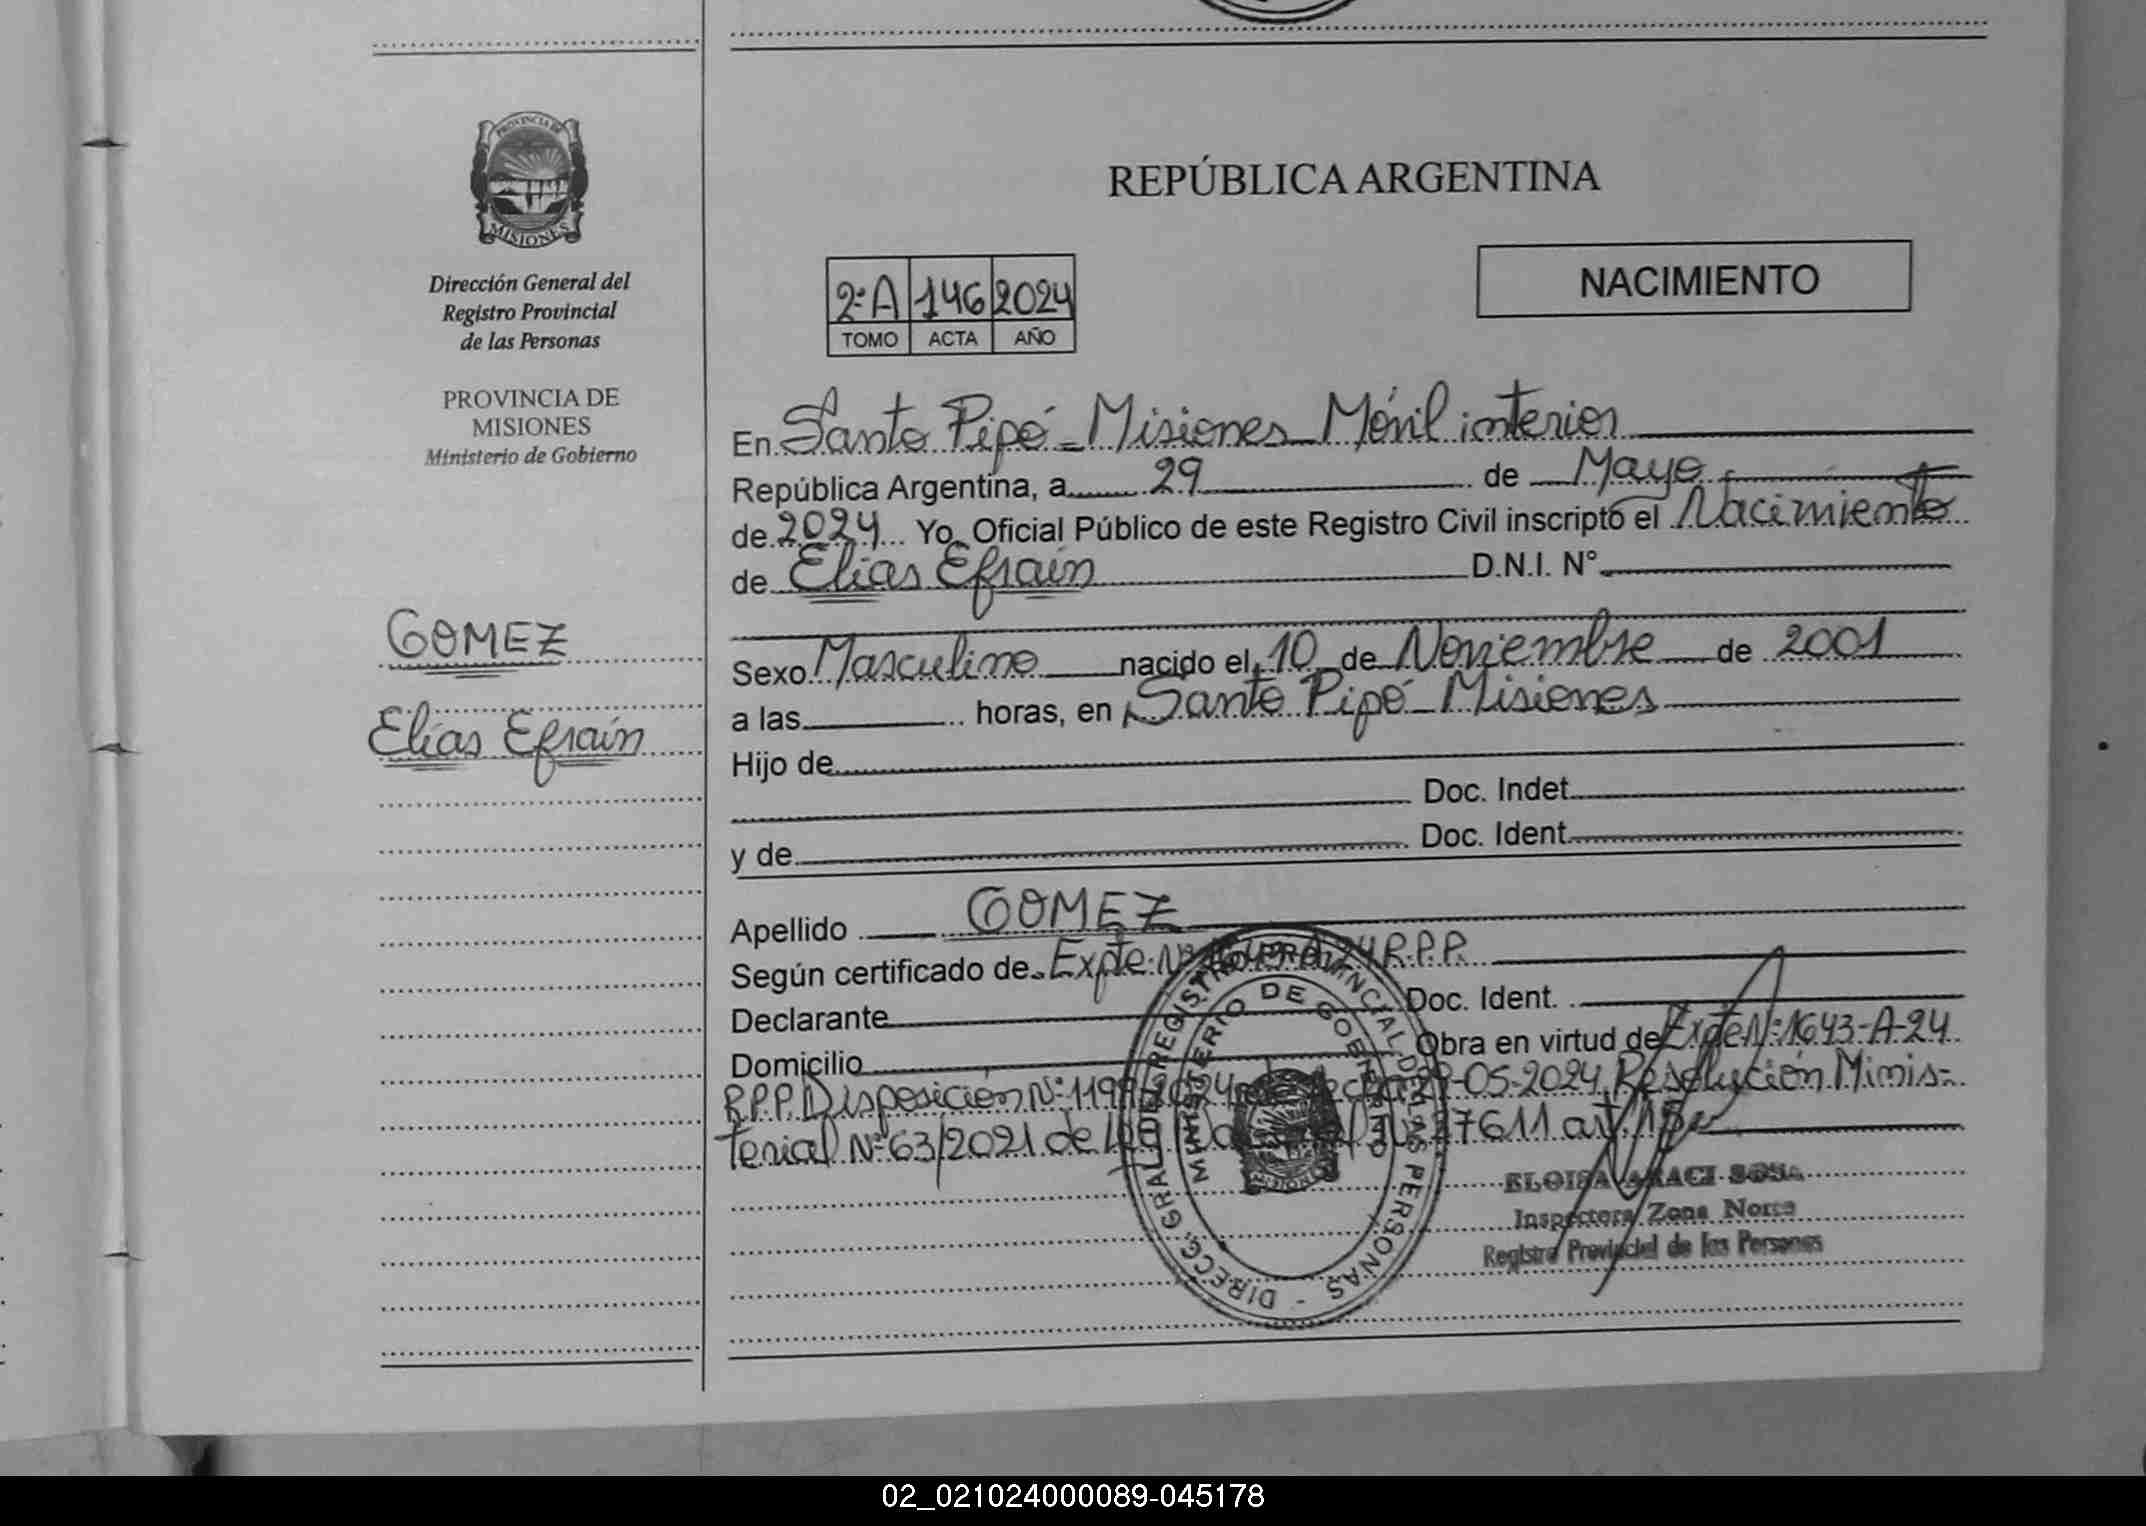 PROVINCIA DE
MISIONES
Dirección General del
Registro Provincial
de las Personas
PROVINCIA DE
MISIONES
Ministerio de Gobierno
GOMEZ
Elías Efraín
REPÚBLICA ARGENTINA
2º A 146 2024
TOMO ACTA AÑO
NACIMIENTO
En Santo Pipó - Misiones Móvil interior
República Argentina, a 29 de Mayo
de 2024 Yo, Oficial Público de este Registro Civil inscripto el Nacimiento
de Elías Efraín D.N.I. N°
Sexo Masculino nacido el 10 de Noviembre de 2001
a las horas, en Santo Pipó - Misiones
Hijo de
Doc. Indet
y de Doc. Ident
Apellido GOMEZ
Según certificado de Expte Nº R.P.P.
Declarante Doc. Ident.
Domicilio Obra en virtud de Expte Nº 1643-A-24
R.P.P. Disposición Nº 05-2024 Resolución Minis-
terial Nº 63/2021 de 17611 art
DIRECC. GRAL. DEL REGISTRO PROVINCIAL DE LAS PERSONAS -
MINISTERIO DE GOBIERNO
ELOISA ARACI SOSA
Inspectora Zona Norte
Registro Provincial de las Personas
02_021024000089-045178